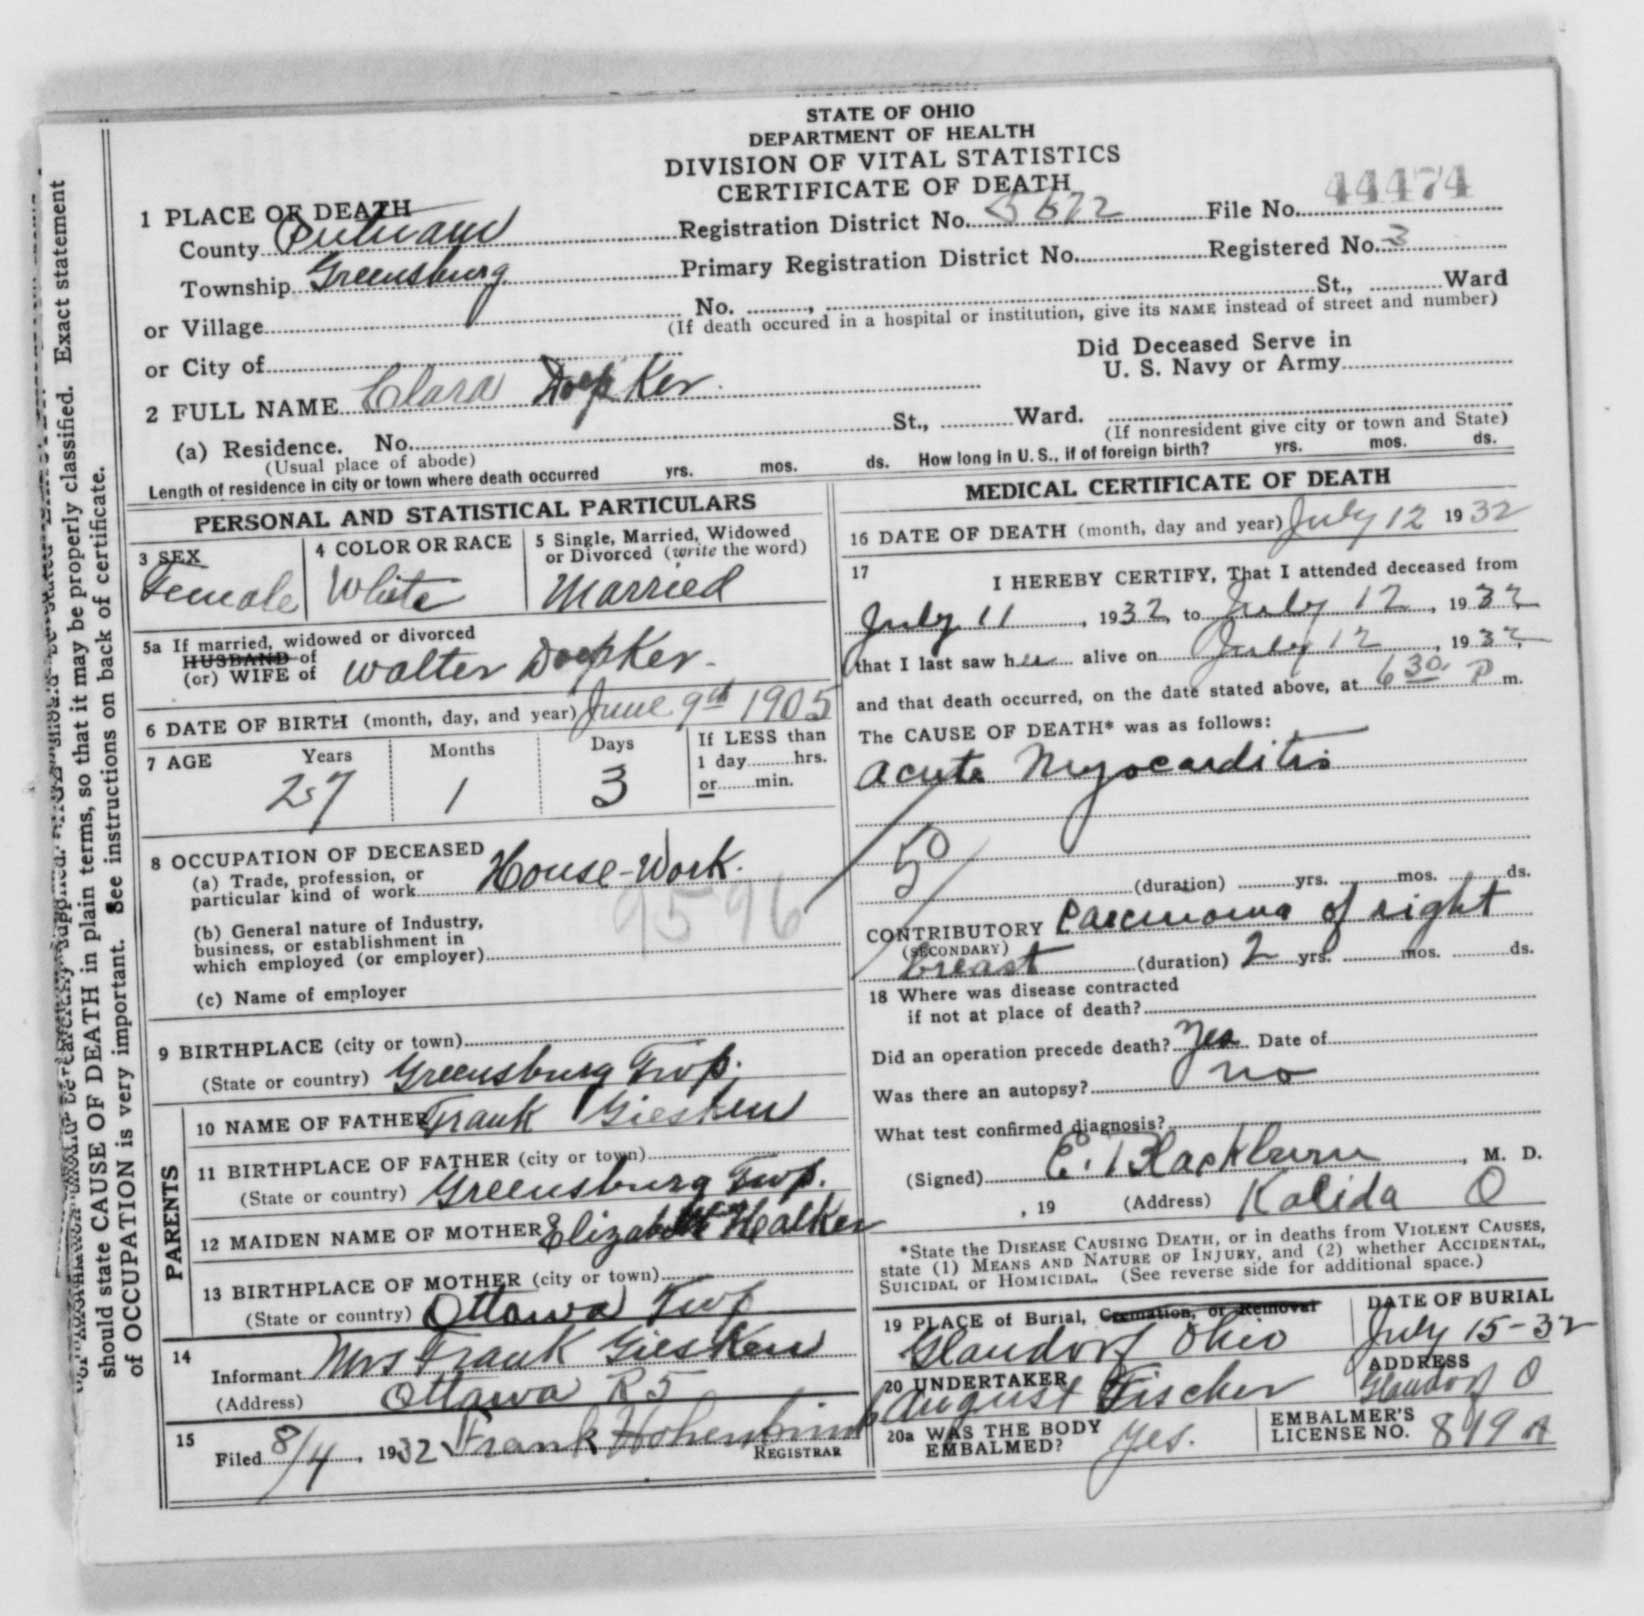 STATE OF OHIO
DEPARTMENT OF HEALTH
DIVISION OF VITAL STATISTICS
CERTIFICATE OF DEATH
1 PLACE OF DEATH
County Putnam Registration District No. File No. 44474
Township Greensburg Primary Registration District No. Registered No. 3
or Village No. , St., Ward
(If death occured in a hospital or institution, give its NAME instead of street and number)
or City of
Did Deceased Serve in
U. S. Navy or Army
2 FULL NAME Clara Doepker
(a) Residence. No. St., Ward.
(Usual place of abode) (If nonresident give city or town and State)
Length of residence in city or town where death occurred yrs. mos. ds. How long in U. S., if of foreign birth? yrs. mos. ds.
PERSONAL AND STATISTICAL PARTICULARS
3 SEX 4 COLOR OR RACE 5 Single, Married, Widowed
or Divorced (write the word)
Female White Married
5a If married, widowed or divorced
HUSBAND of
(or) WIFE of Walter Doepker
6 DATE OF BIRTH (month, day, and year) June 9th 1905
7 AGE Years Months Days If LESS than
1 day hrs.
or min.
27 1 3
8 OCCUPATION OF DECEASED
(a) Trade, profession, or
particular kind of work House-Work.
9596
(b) General nature of Industry,
business, or establishment in
which employed (or employer)
(c) Name of employer
9 BIRTHPLACE (city or town)
(State or country) Greensburg Twp.
PARENTS
10 NAME OF FATHER Frank Giesken
11 BIRTHPLACE OF FATHER (city or town)
(State or country) Greensburg Twp.
12 MAIDEN NAME OF MOTHER Elizabeth Halker
13 BIRTHPLACE OF MOTHER (city or town)
(State or country) Ottawa Twp
14
Informant Mrs Frank Giesken
(Address) Ottawa R5
15
Filed 8/4, 1932 Frank Hohenbrink
REGISTRAR
MEDICAL CERTIFICATE OF DEATH
16 DATE OF DEATH (month, day and year) July 12 1932
17
I HEREBY CERTIFY, That I attended deceased from
July 11, 1932, to July 12, 1932
that I last saw her alive on July 12, 1932,
and that death occurred, on the date stated above, at 6 30 P m.
The CAUSE OF DEATH* was as follows:
Acute Myocarditis
50
(duration) yrs. mos. ds.
CONTRIBUTORY Carcinoma of right
(SECONDARY)
breast (duration) 2 yrs. mos. ds.
18 Where was disease contracted
if not at place of death?
Did an operation precede death? Yes Date of
Was there an autopsy? no
What test confirmed diagnosis?
(Signed) E. Blackburn, M. D.
, 19 (Address) Kalida O
*State the DISEASE CAUSING DEATH, or in deaths from VIOLENT CAUSES,
state (1) MEANS AND NATURE OF INJURY, and (2) whether ACCIDENTAL,
SUICIDAL or HOMICIDAL. (See reverse side for additional space.)
19 PLACE of Burial, Cremation, or Removal DATE OF BURIAL
Glandorf Ohio July 15-32
20 UNDERTAKER ADDRESS
August Fischer Glandorf O
20a WAS THE BODY
EMBALMED? Yes.
EMBALMER'S
LICENSE NO. 819 A
Exact statement
should state CAUSE OF DEATH in plain terms, so that it may be properly classified.
of OCCUPATION is very important. See instructions on back of certificate.